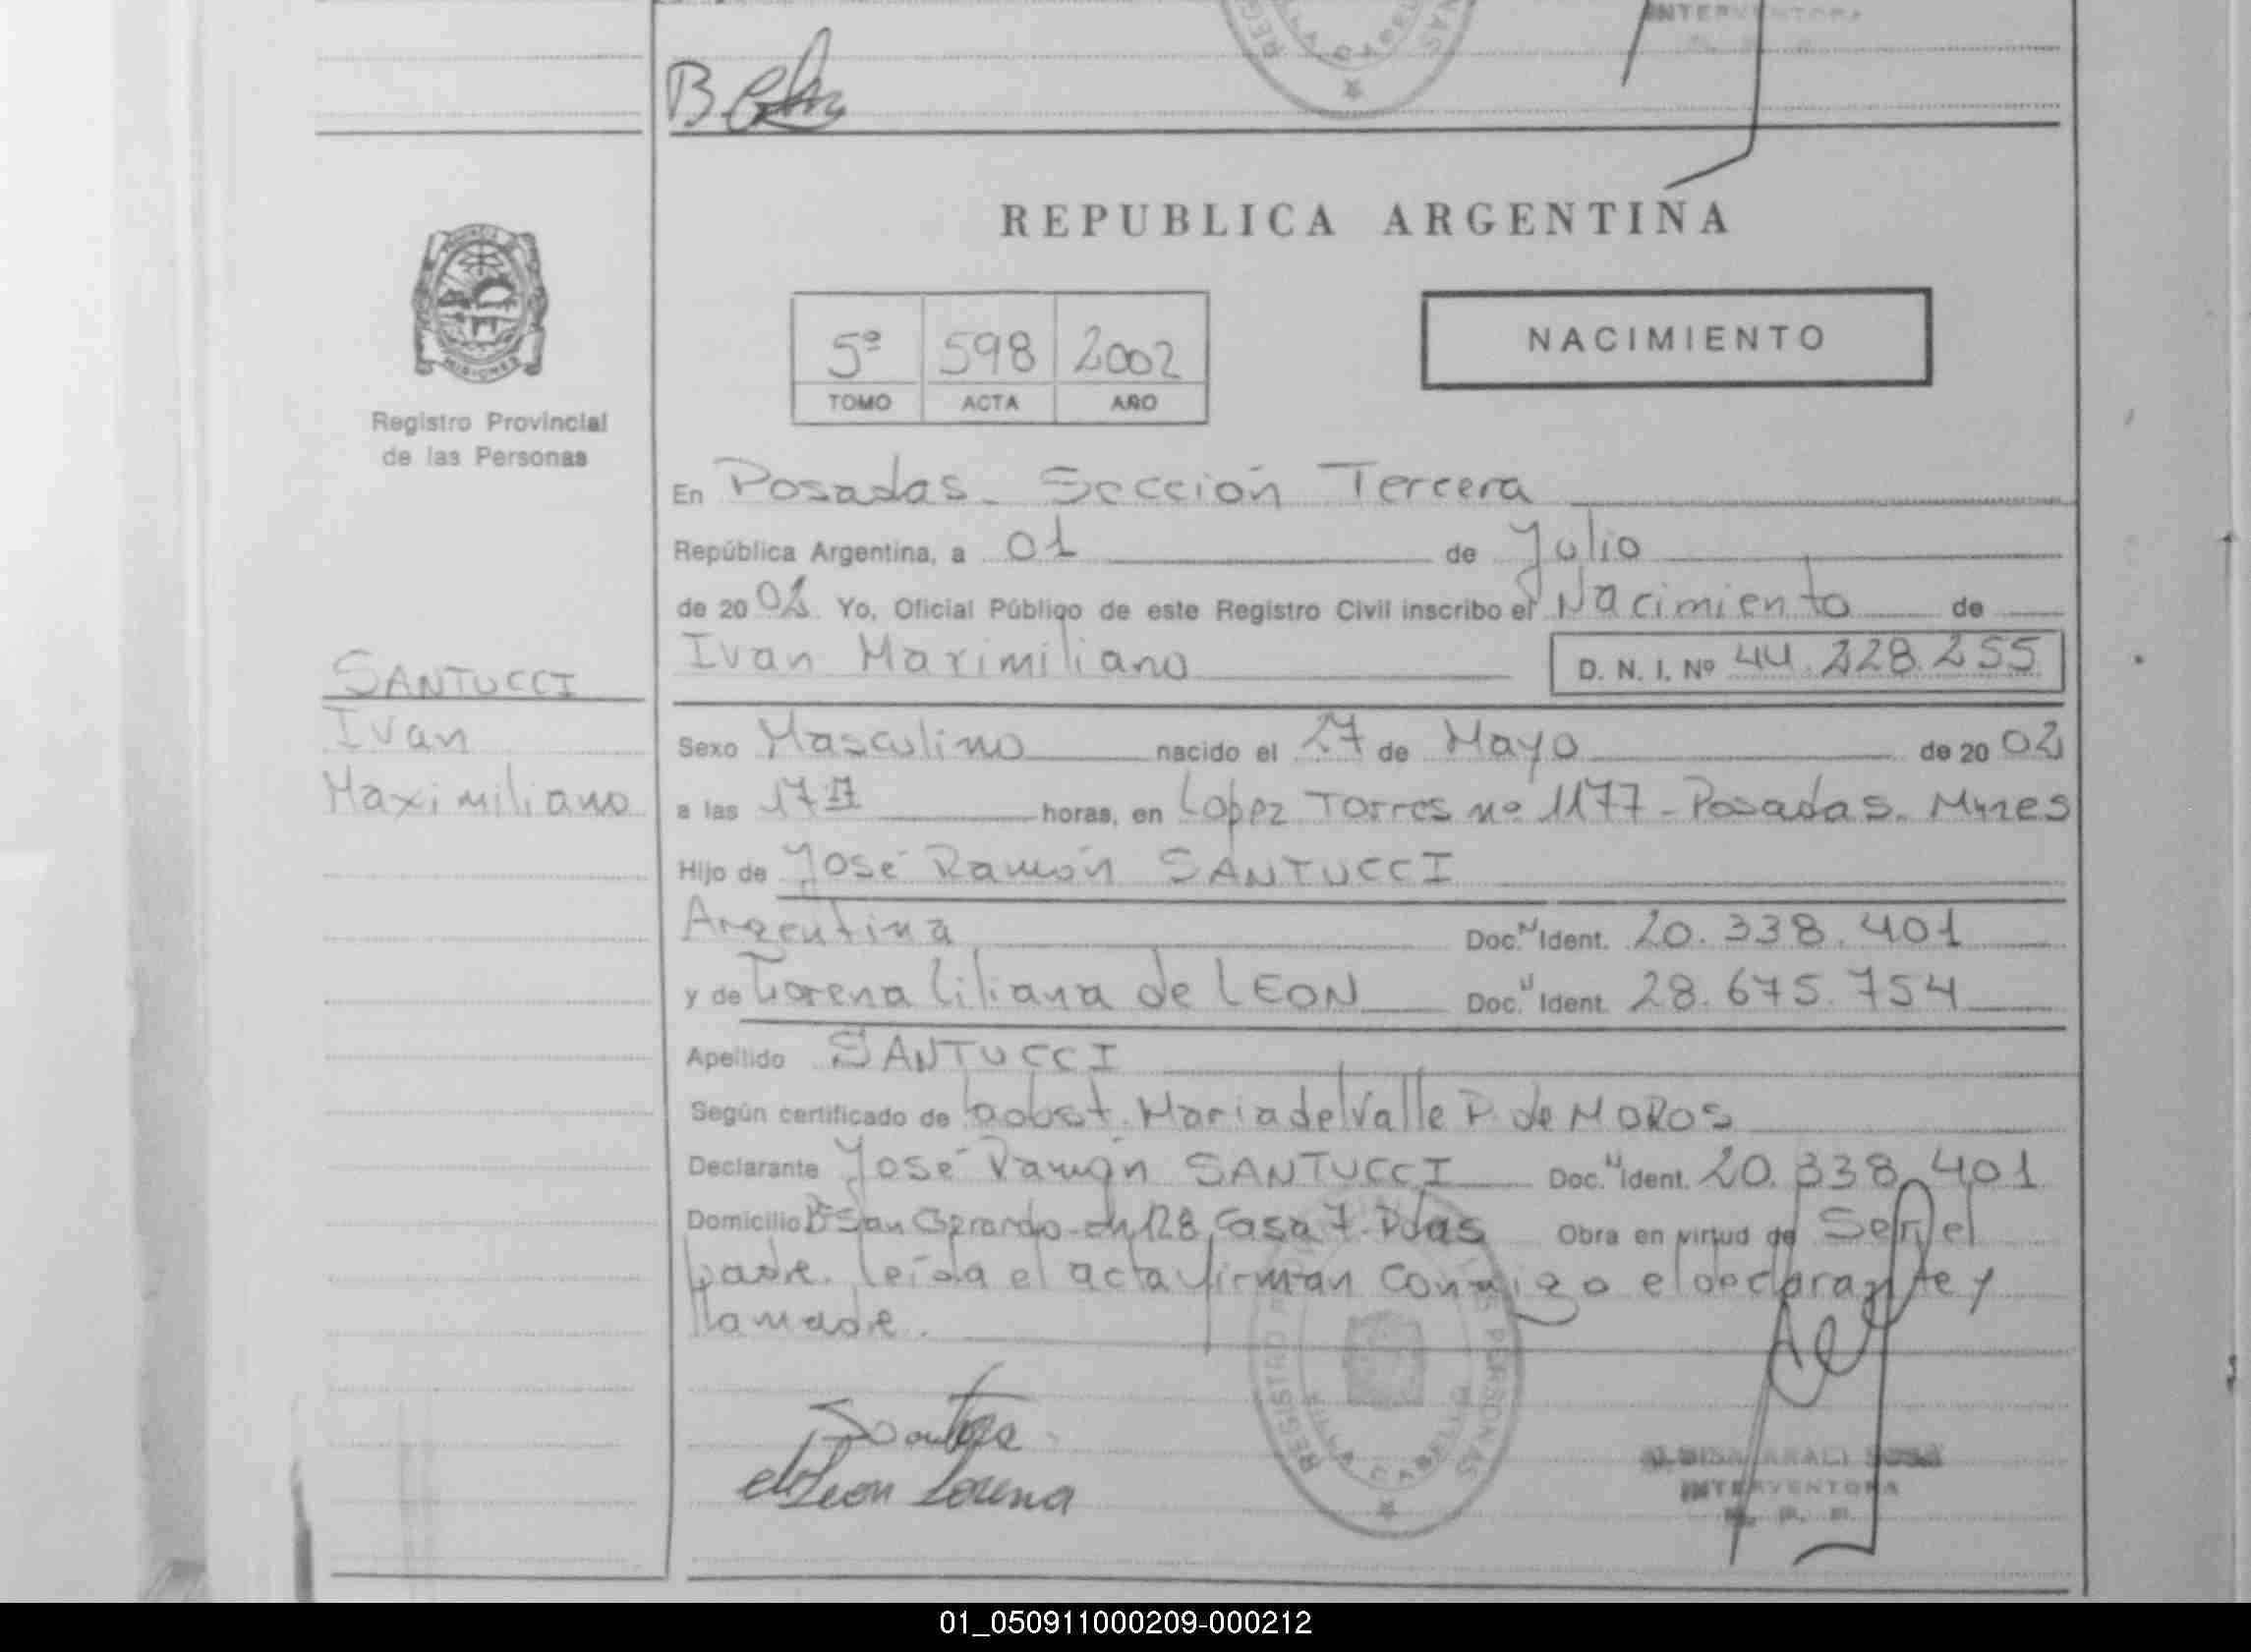 INTERVENTORA
REPUBLICA ARGENTINA
5º 598 2002
TOMO ACTA AÑO
NACIMIENTO
Registro Provincial
de las Personas
En Posadas - Sección Tercera
República Argentina, a 01 de Julio
de 2002 Yo, Oficial Público de este Registro Civil inscribo el Nacimiento de
Ivan Maximiliano D. N. I. Nº 44.228.255
SANTUCCI
Ivan
Maximiliano
Sexo Masculino nacido el 27 de Mayo de 2002
a las 17 horas, en Lopez Torres nº 1177 - Posadas. Mnes
Hijo de José Ramón SANTUCCI
Argentina Doc. N Ident. 20.338.401
y de Lorena Liliana de LEON Doc. N Ident. 28.675.754
Apellido SANTUCCI
Según certificado de la obst. Maria del Valle P. de MOROS
Declarante José Ramón SANTUCCI Doc. N Ident. 20.338.401
Domicilio Bº San Gerardo - ch 128 Casa 7. Pdas Obra en virtud de Ser el
padre. leída el acta firman conmigo el declarante y
la madre.
REGISTRO PERSONAS
de Leon Lorena
INTERVENTORA
R. P. P.
01_050911000209-000212